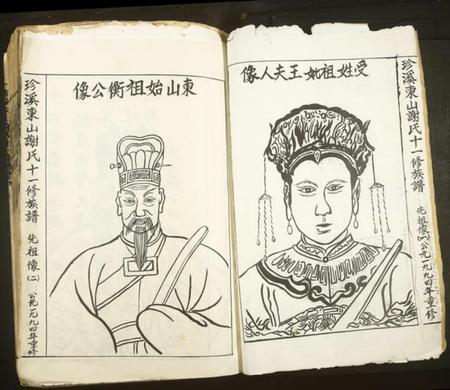 珍溪東山謝氏十一修族譜 先祖像(一) 公元一九九四年重修
受姓祖妣王夫人像
東山始祖衡公像
珍溪東山謝氏十一修族譜 先祖像(二) 公元一九九四年重修